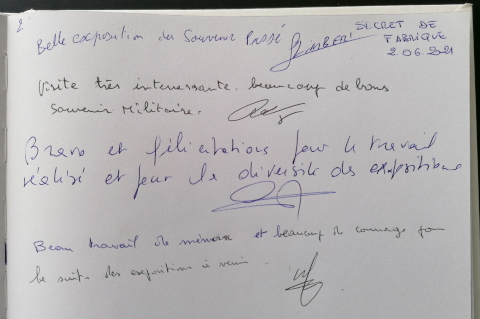 2
Belle exposition du Souvenir Passé
SECRET DE
FABRIQUE
2.06.2021
Visite très interessante. beaucoup de bons
souvenir militaire.
Bravo et félicitations pour le travail
réalisé et pour la diversité des expositions
Beau travail de mémoire et beaucoup de courage pour
la suite des expositions à venir.